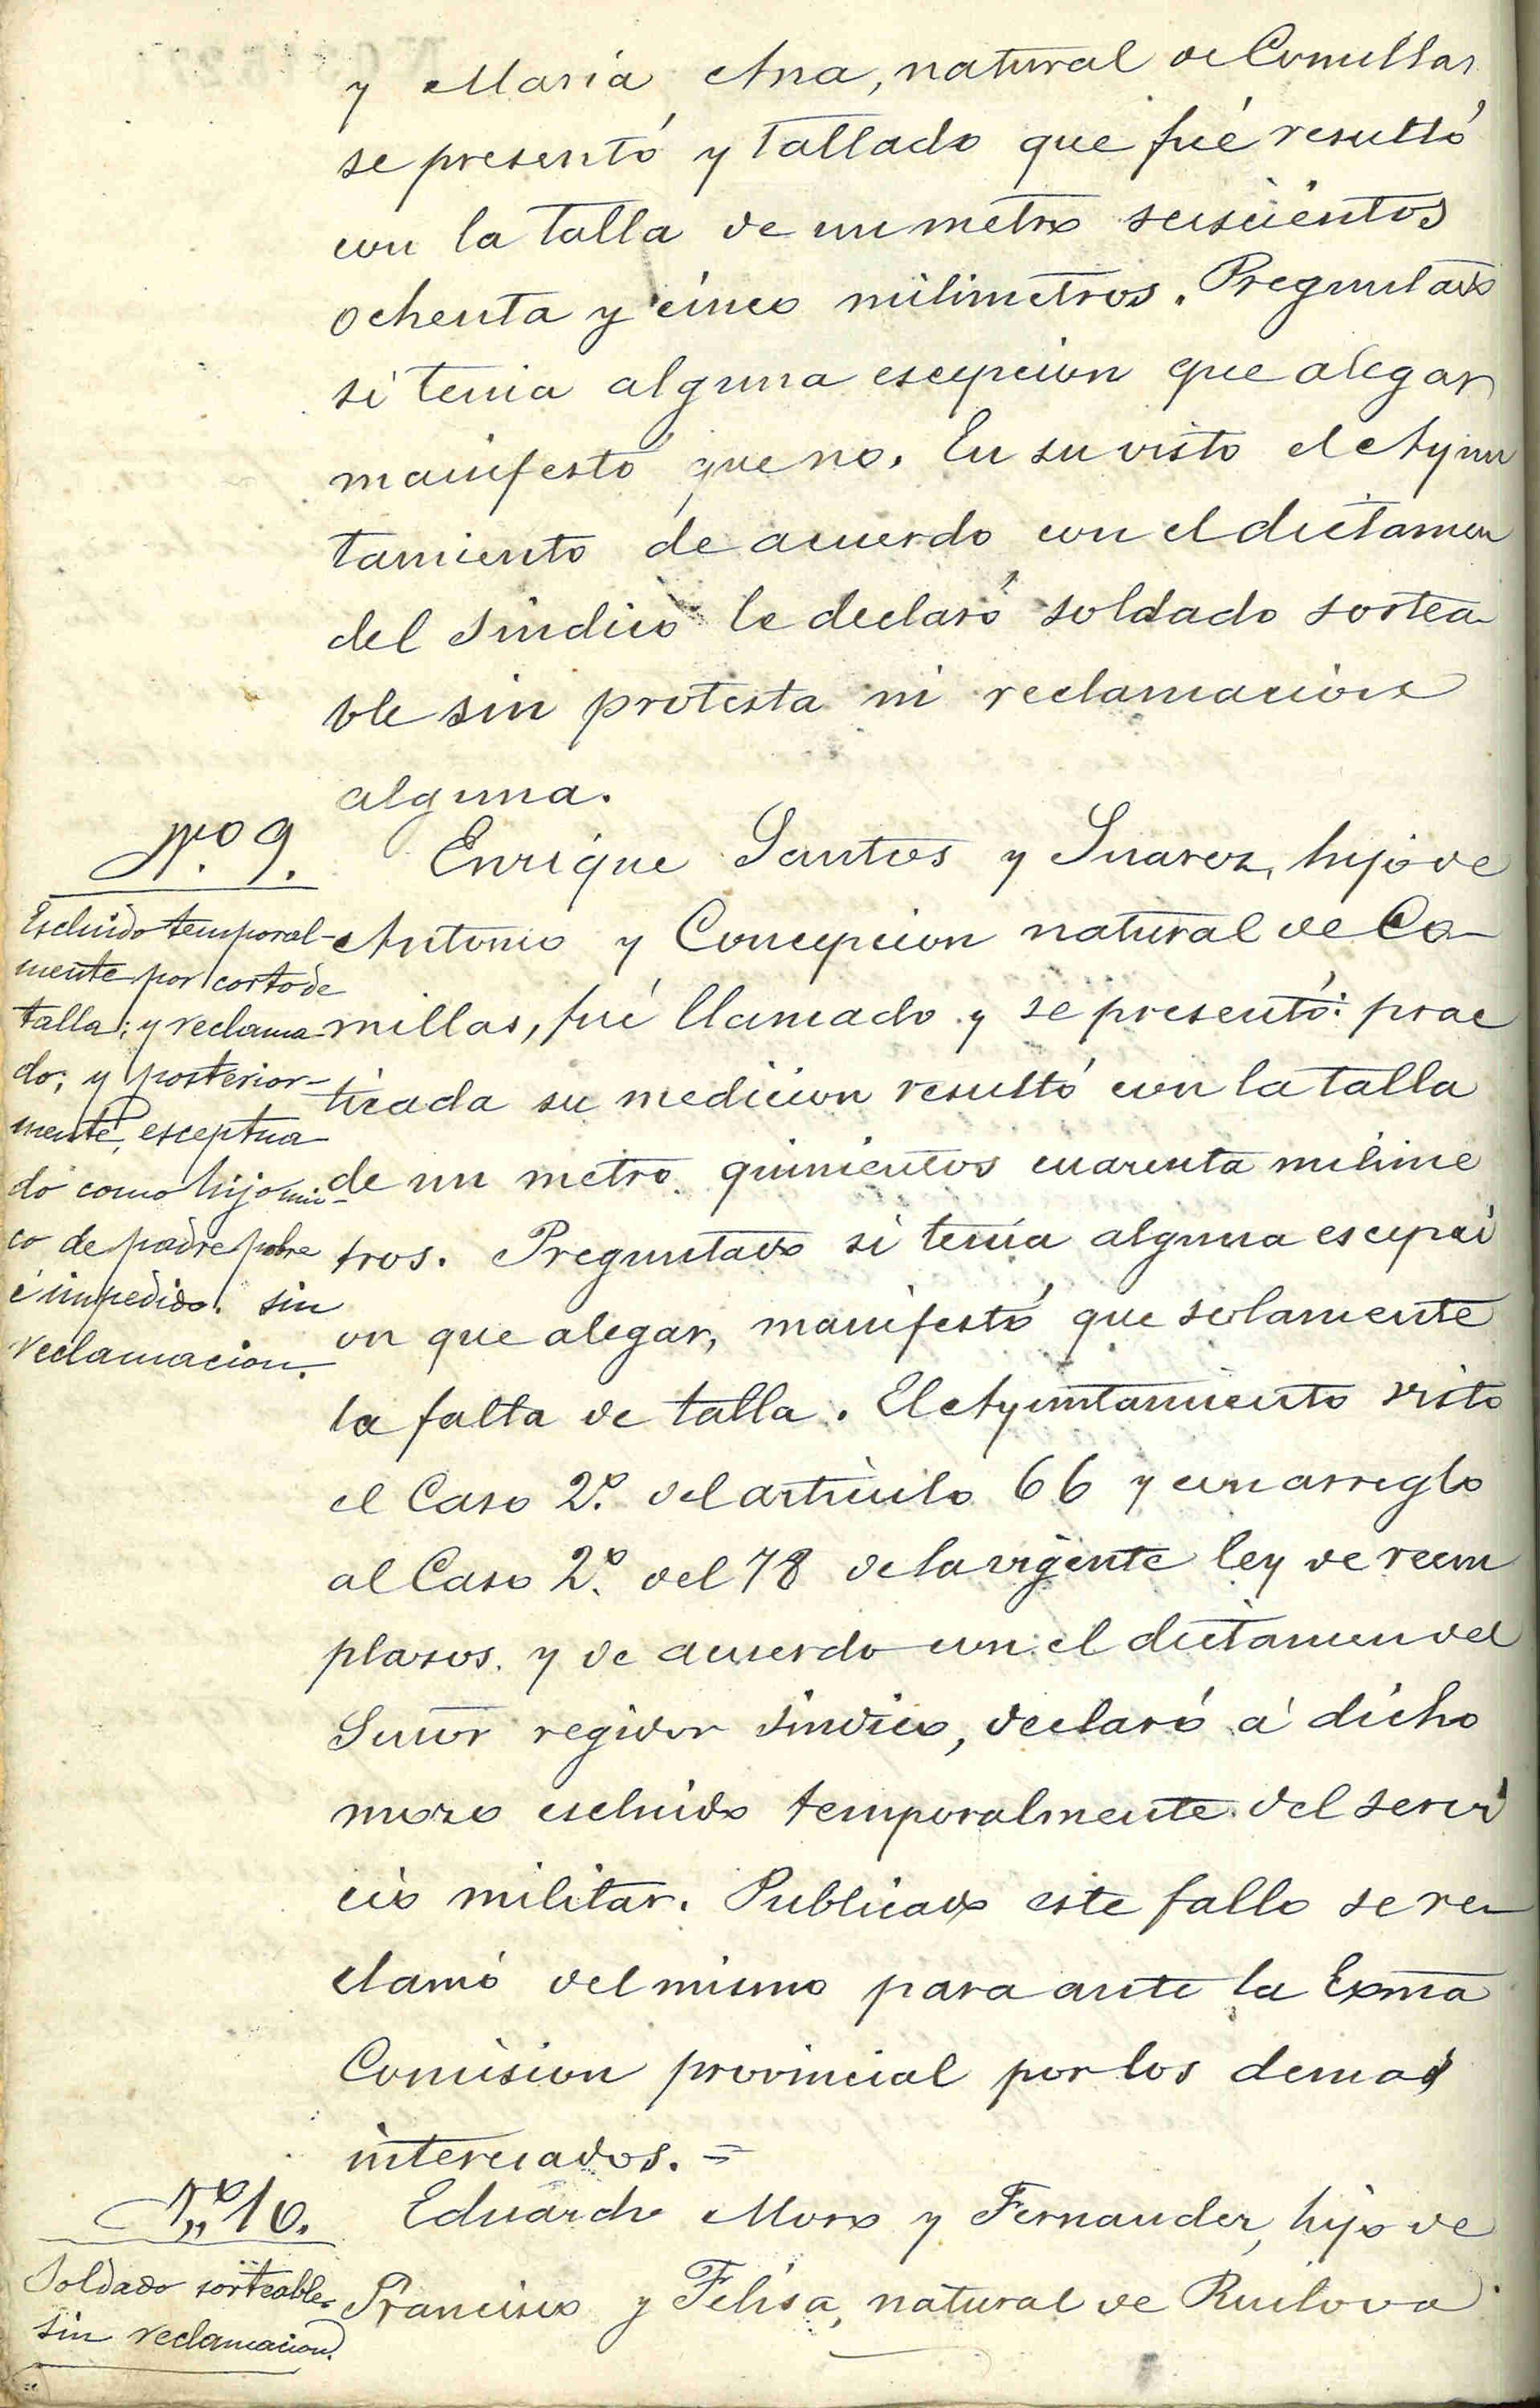 y Maria Ana, natural de Comillas
se presentó y tallado que fué resultó
con la talla de un metro seiscientos
ochenta y cinco milimetros. Preguntado
si tenia alguna escepcion que alegar
manifestó que no. En su visto el Ayun
tamiento de acuerdo con el dictamen
del Sindico le declaró soldado sortea-
ble sin protesta ni reclamacion
alguna.
Nº 9.
Escluido temporal-
mente por corto de
talla; y reclama-
do; y posterior-
mente, esceptua
do como hijo úni-
co de padre pobre
é impedido. sin
reclamacion.
Enrique Santos y Suarez, hijo de
Antonio y Concepcion natural de Co-
millas, fué llamado y se presentó: prac
ticada su medicion resultó con la talla
de un metro quinientos cuarenta milime
tros. Preguntado si tenía alguna escepci
on que alegar, manifestó que solamente
la falta de talla. El Ayuntamiento visto
el Caso 2º. del artículo 66 y con arreglo
al Caso 2º. del 78 de la vigente ley de reem
plazos. y de acuerdo con el dictamen del
Señor regidor Sindico, declaró á dicho
mozo escluido temporalmente del servi
cio militar. Publicado este fallo se re-
clamó del mismo para ante la Exma
Comision provincial por los demas
interesados. =
Nº 10.
Soldado sorteable.
sin reclamacion.
Eduardo Moro y Fernandez, hijo de
Francisco y Felisa, natural de Ruilova